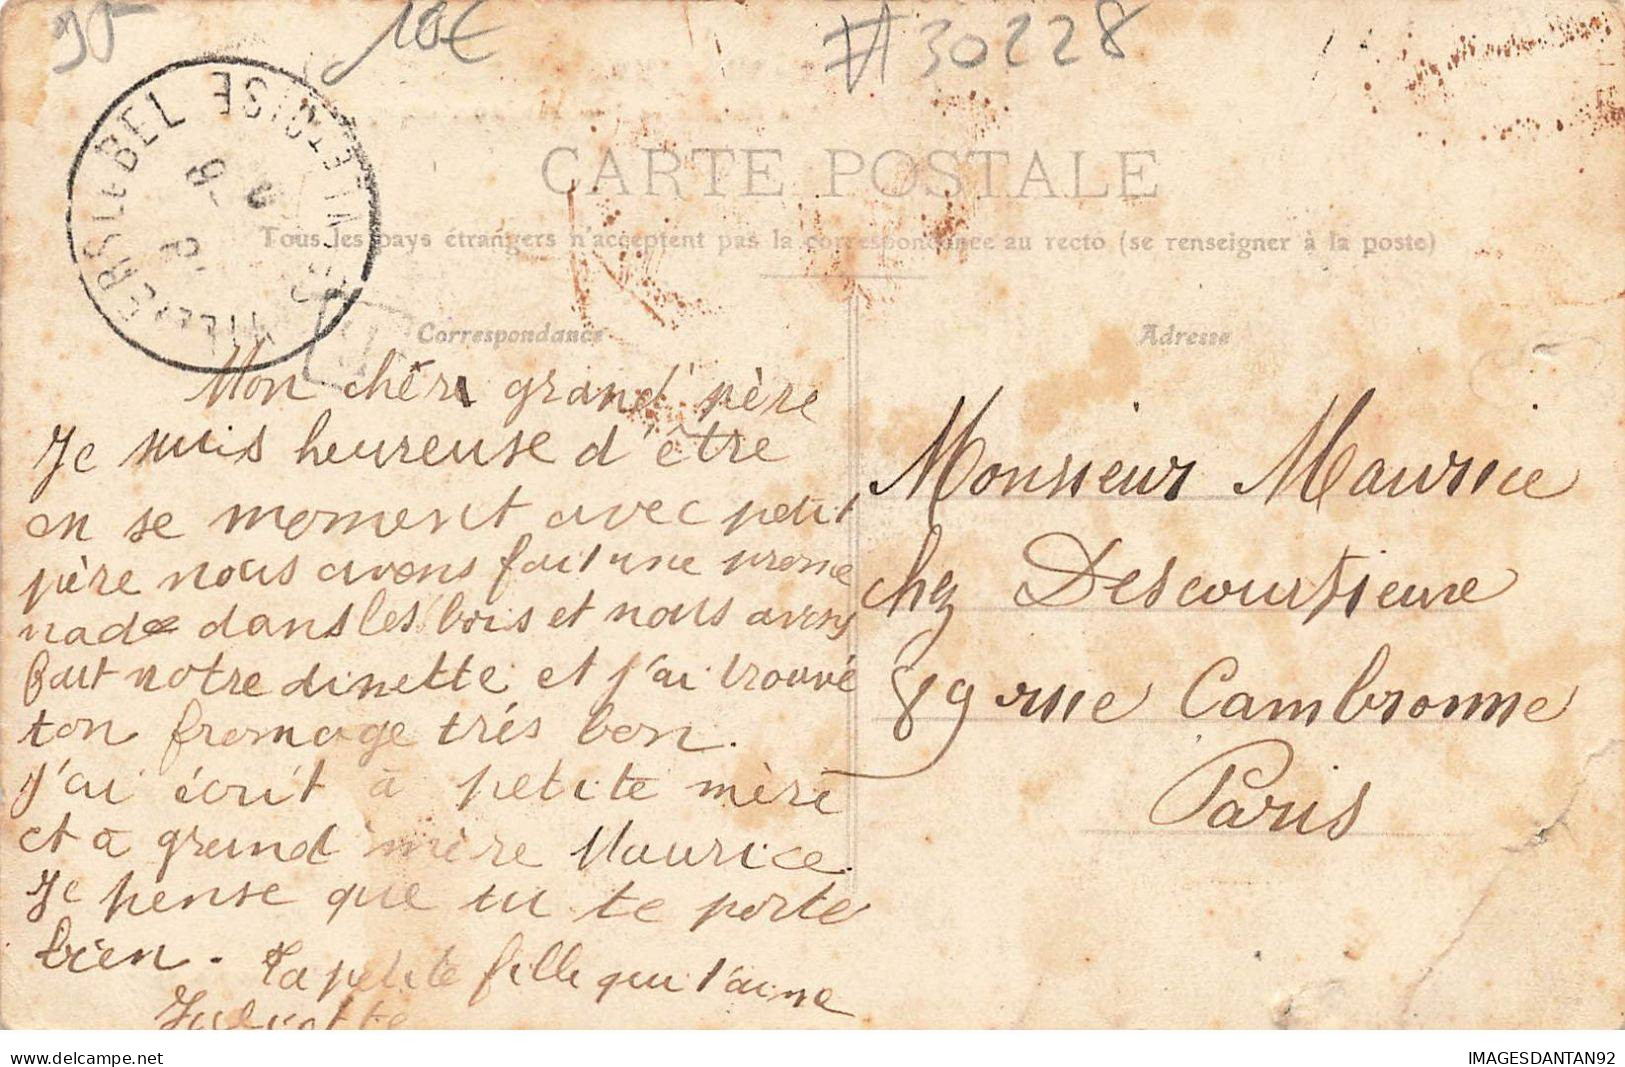 95
10€
#30228
VILLIERS LE BEL SEINE ET OISE
CARTE POSTALE
Tous les pays étrangers n'acceptent pas la correspondance au recto (se renseigner à la poste)
Correspondance
Adresse
Mon cher grand'père
Je suis heureuse d'être
en se moment avec petit
père nous avons fait une prome
nade dans les bois et nous avons
fait notre dinette et j'ai trouvé
ton fromage trés bon.
J'ai écrit à petite mère
et a grand mère Maurice.
Je pense que tu te porte
bien. Ta petite fille qui t'aime
Juliette
Monsieur Maurice
chez Descourtieux
89 rue Cambronne
Paris
www.delcampe.net
IMAGESDANTAN92